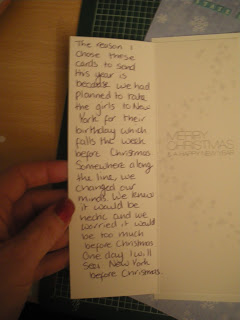 The reason I
chose these
cards to send
this year is
because we had
planned to take
the girls to New
York for their
birthday which
falls the week
before Christmas.
Somewhere along
the line, we
changed our
minds. We knew
it would be
hectic and we
worried it would
be too much
before Christmas
One day I will
see New York
before Christmas.
MERRY
CHRISTMAS
& A HAPPY NEW YEAR